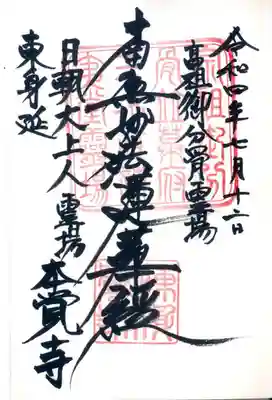 令和四年七月十二日
高祖御分骨霊場
南無妙法蓮華経
日朝大上人 霊場 本覚寺
東身延